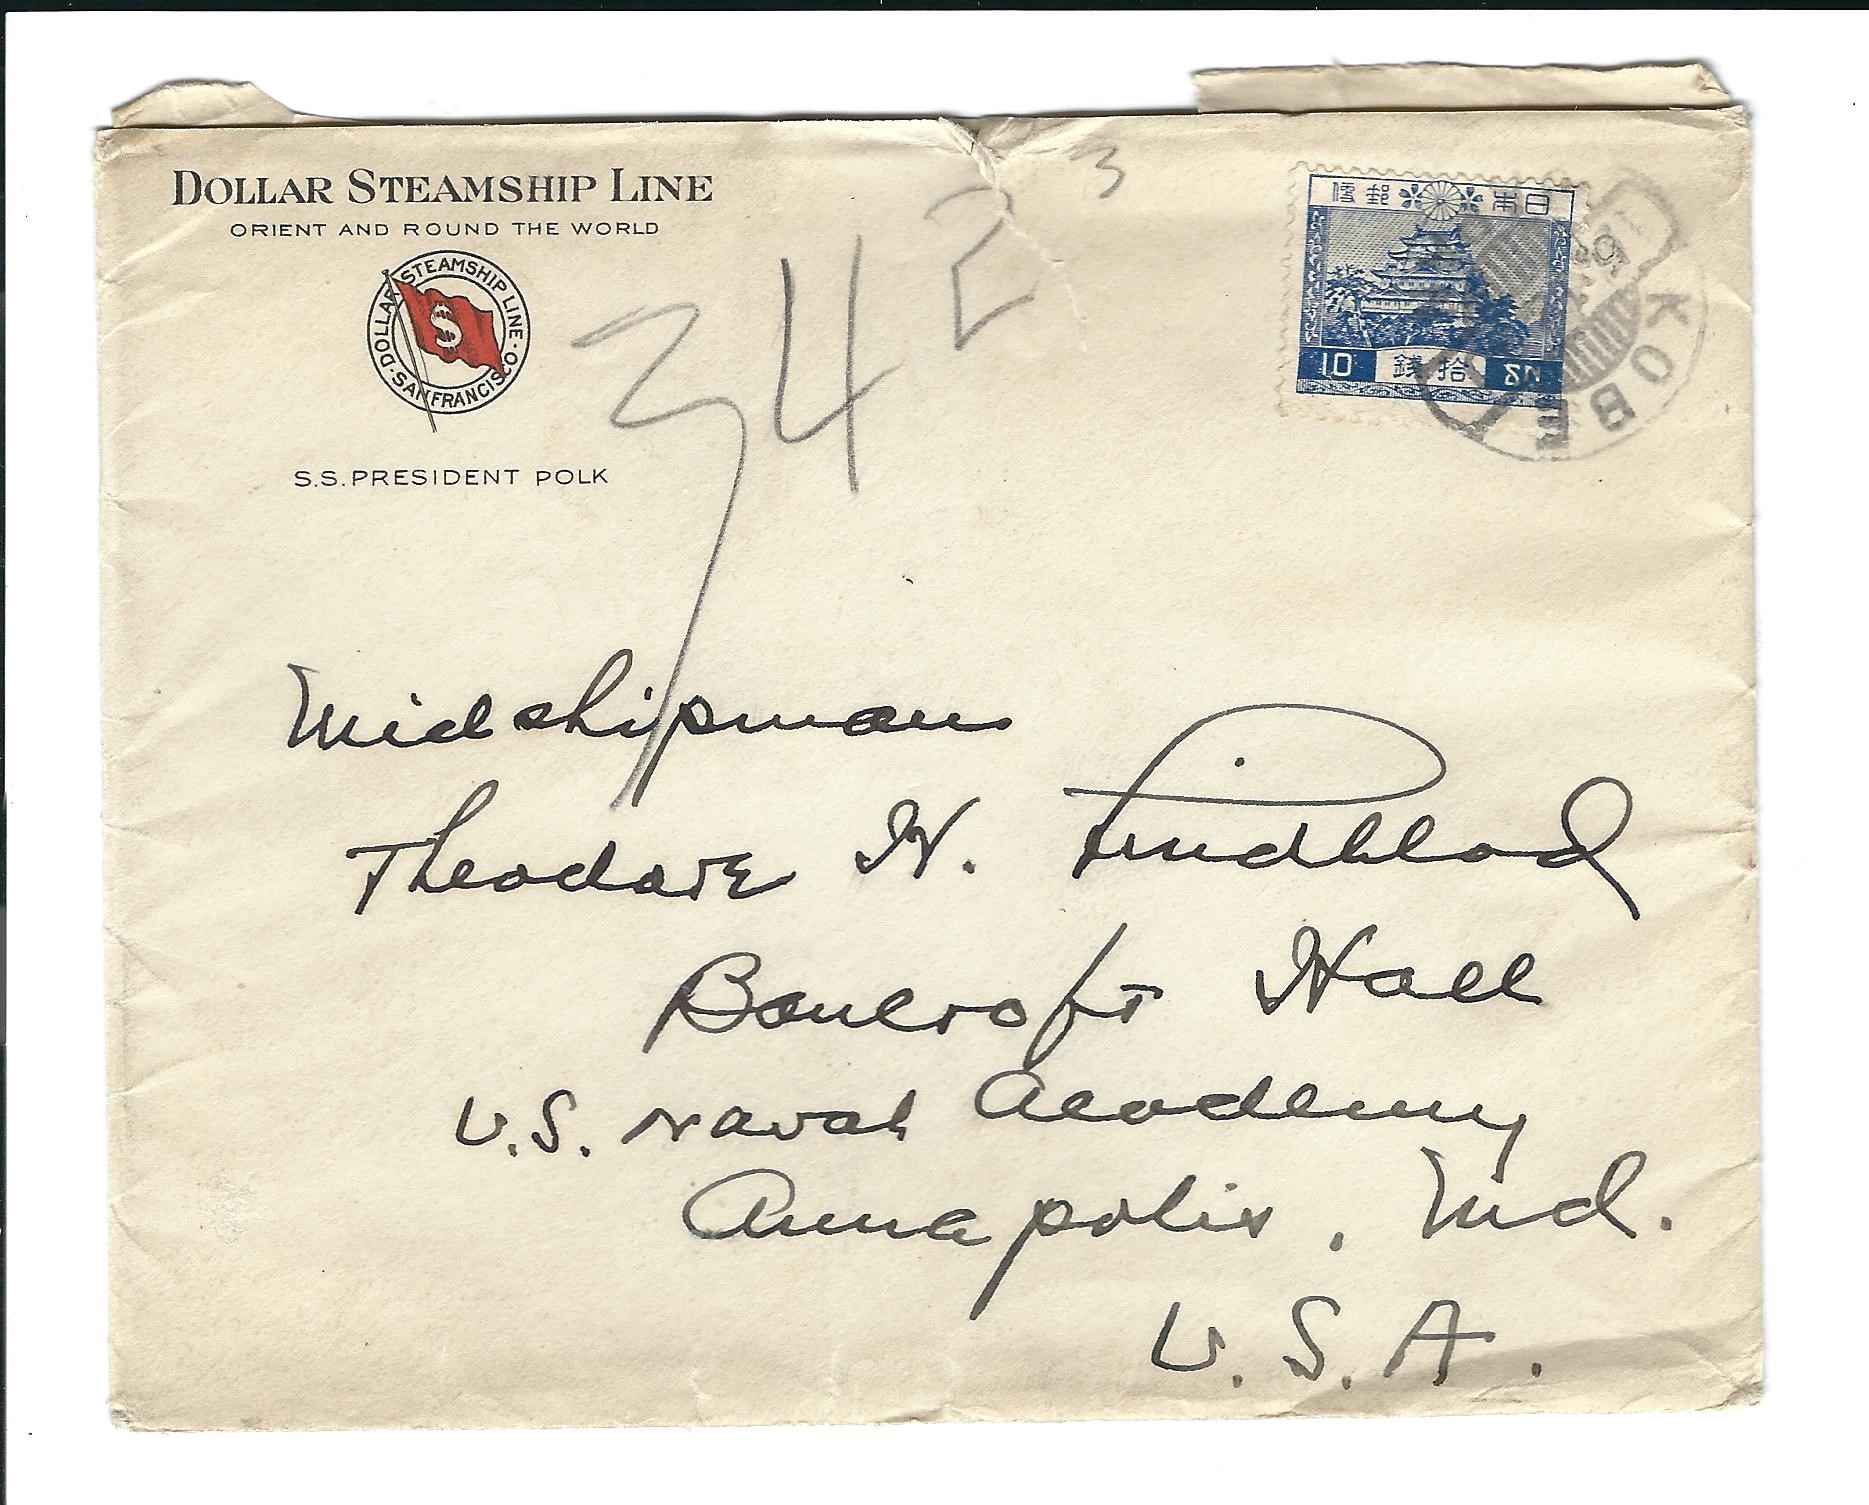 DOLLAR STEAMSHIP LINE
ORIENT AND ROUND THE WORLD
DOLLAR STEAMSHIP LINE · SAN FRANCISCO ·
$
S.S. PRESIDENT POLK
3
2
34
日本郵便
10 拾銭 SN
KOBE
Midshipman
Theodore H. Lindblad
Bancroft Hall
U.S. Naval Academy
Annapolis, Md.
U.S.A.